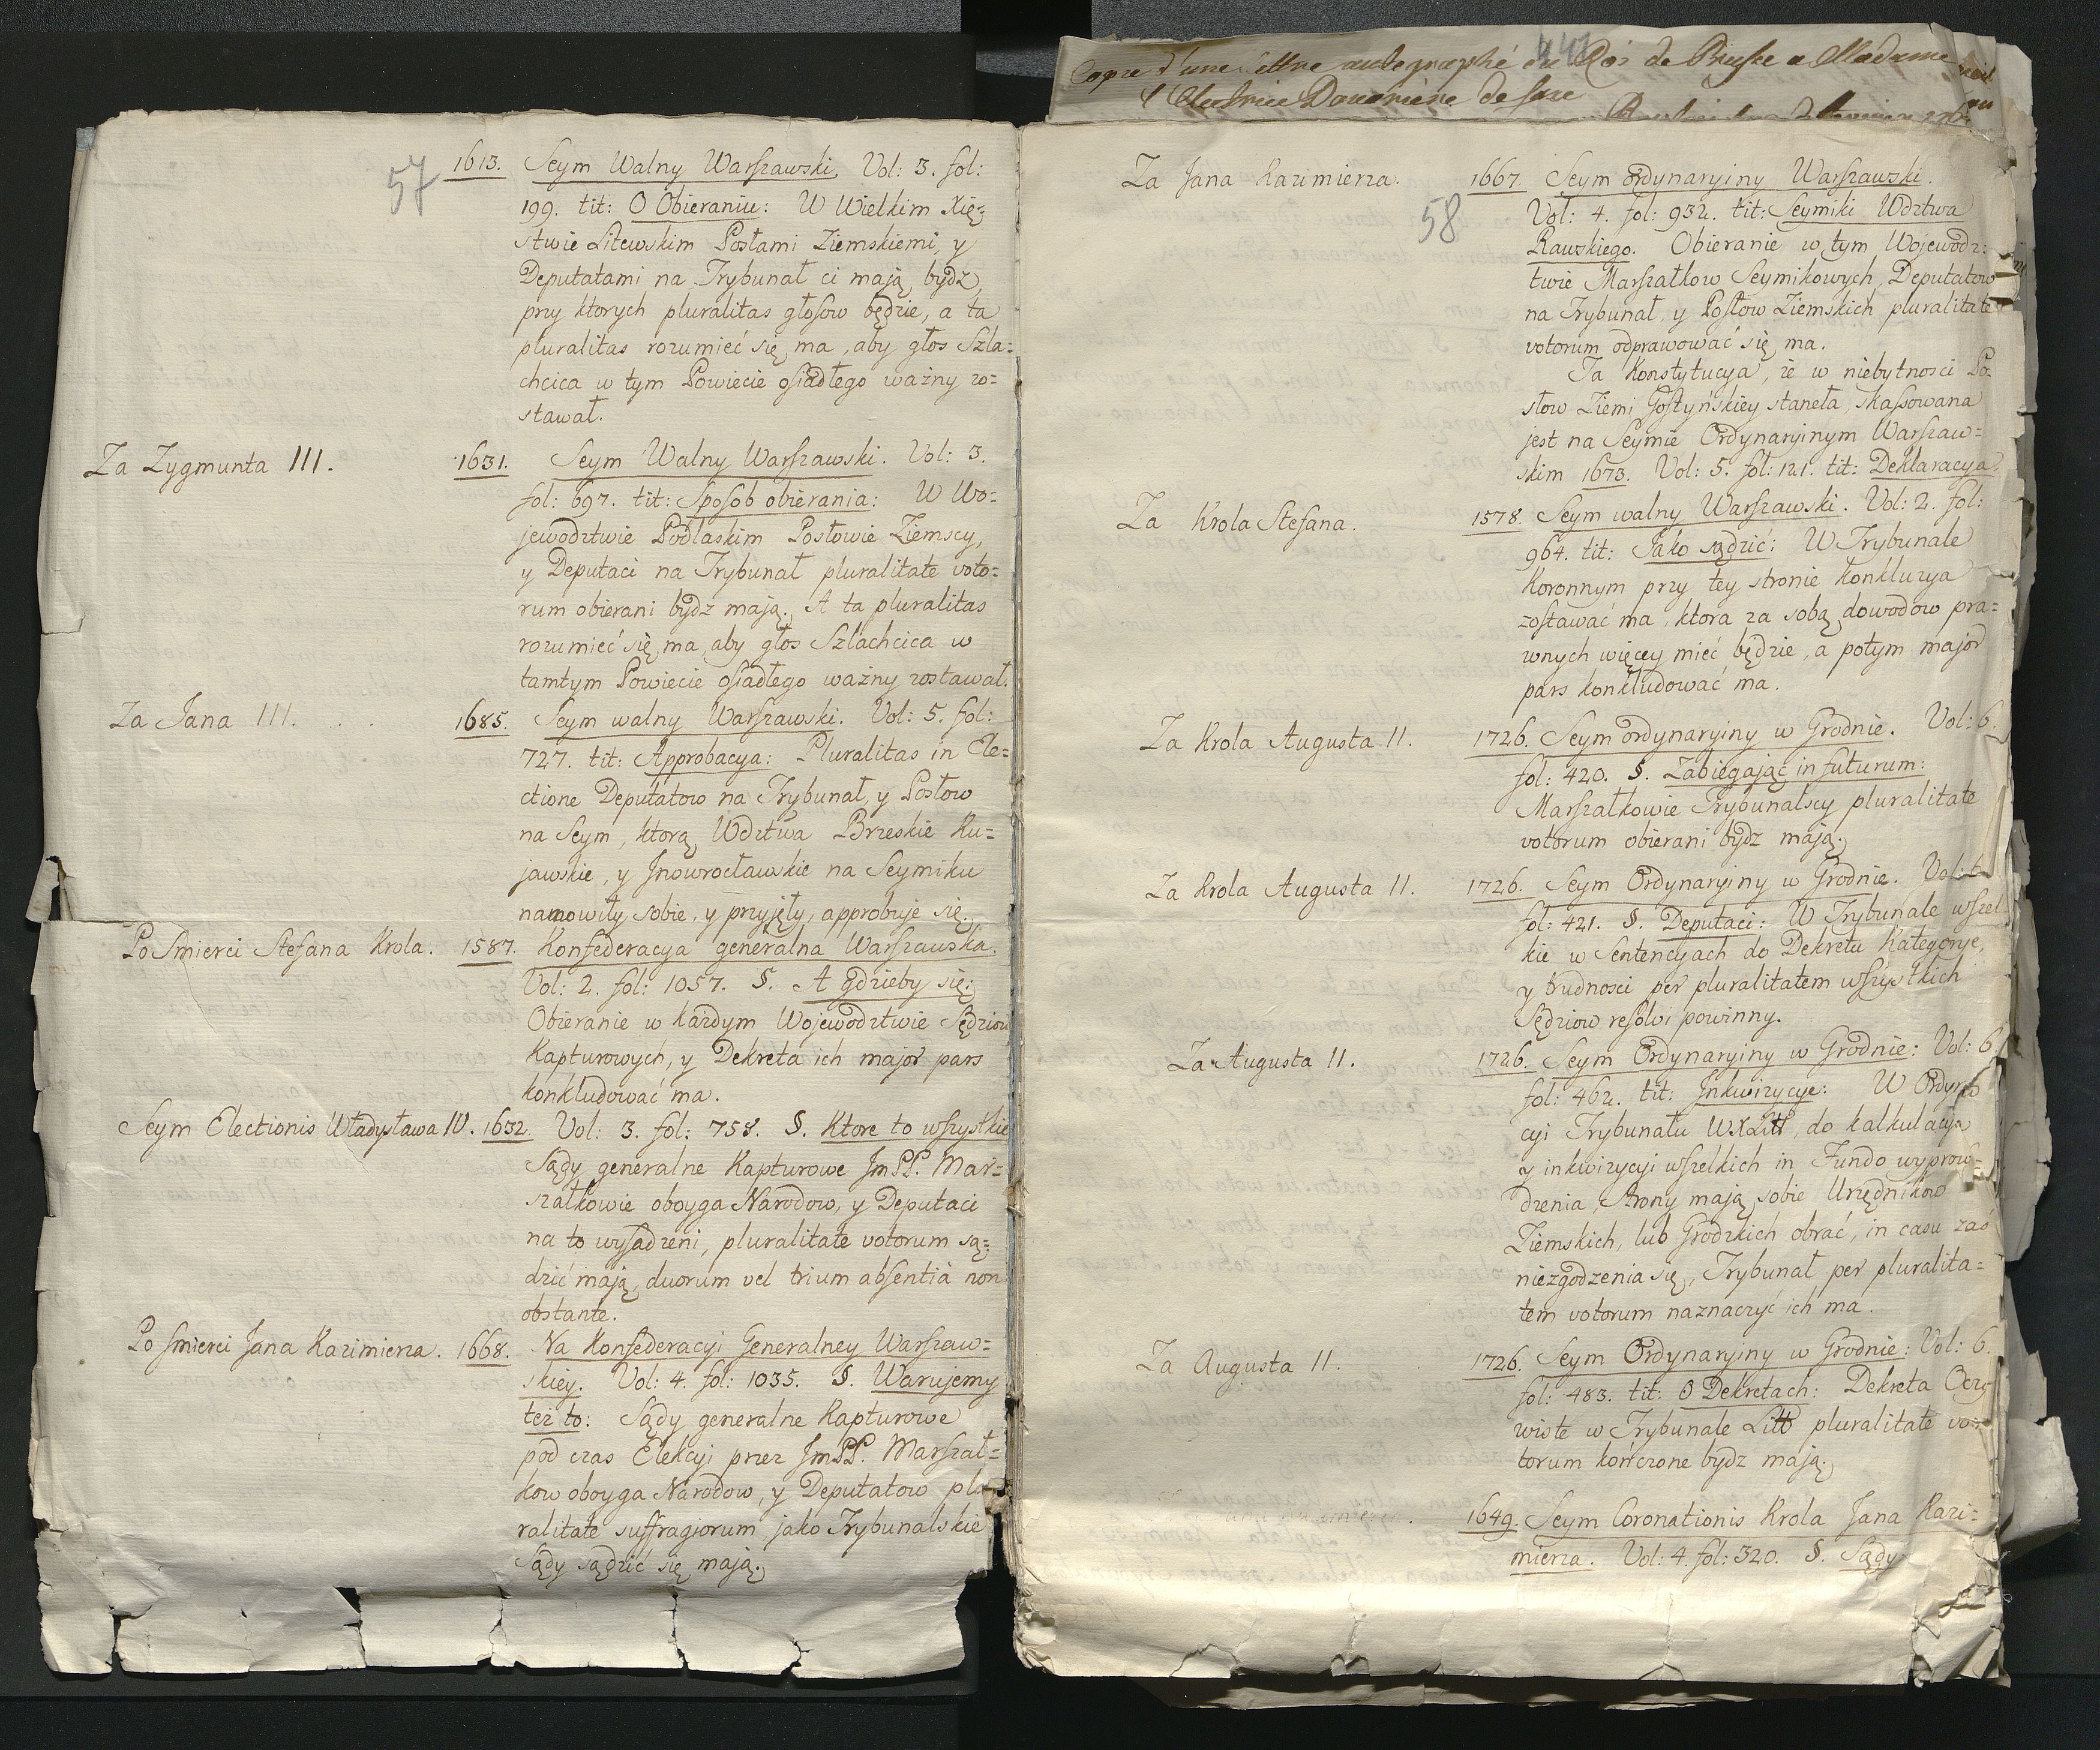 57
1613. Seym Walny Warszawski, Vol: 3. fol:
199. tit: O Obieraniu: W Wielkim Xię=
stwie Litewskim Posłami Ziemskiemi, y
Deputatami na Trybunał ci mają bydz,
przy ktorych pluralitas głosow będzie, a ta
pluralitas rozumieć się ma, aby głos Szla=
chcica w tym Powiecie osiadłego ważny zo=
stawał.
Za Zygmunta III. 1631. Seym Walny Warszawski. Vol: 3.
fol: 697. tit: Sposob obierania: W Wo=
jewodztwie Podlaskim Posłowie Ziemscy,
y Deputaci na Trybunał pluralitate voto=
rum obierani bydz mają. A ta pluralitas
rozumieć się ma, aby głos Szlachcica w
tamtym Powiecie osiadłego ważny zostawał.
Za Jana III. . . 1685. Seym walny Warszawski. Vol: 5. fol:
727. tit: Approbacya: Pluralitas in Ele=
ctione Deputatow na Trybunał, y Posłow
na Seym, ktorą Wdztwa Brzeskie Ku=
jawskie, y Jnowrocławskie na Seymiku
namowiły sobie, y przyjęły, approbuje się.
Po Smierci Stefana Krola. 1587. Konfederacya generalna Warszawska.
Vol: 2. fol: 1057. §. A gdzieby się:
Obieranie w każdym Wojewodztwie Sędziow
Kapturowych, y Dekreta ich major pars
konkludować ma.
Seym Electionis Władysława IV. 1632. Vol: 3. fol: 758. §. Ktore to wszystkie
Sądy generalne Kapturowe JmPP. Mar=
szałkowie oboyga Narodow, y Deputaci
na to wysadzeni, pluralitate votorum są=
dzić mają, duorum vel trium absentià non
obstante.
Po Smierci Jana Kazimierza. 1668. Na Konfederacyi Generalney Warszaw=
skiey. Vol: 4. fol: 1035. §. Warujemy
też to: Sądy generalne Kapturowe
pod czas Elekcyi przez JmPP. Marszał=
kow oboyga Narodow, y Deputatow plu
ralitate suffragiorum jako Trybunalskie
Sądy sądzić się mają.
Copie d'une lettre autographé du Roi de Prusse a Madame
l'Electrice Douariere de Saxe
58
Za Jana Kazimierza. 1667. Seym ordynaryiny Warszawski.
Vol: 4. fol: 932. tit: Seymiki Wdztwa
Rawskiego. Obieranie w tym Wojewodz=
twie Marszałkow Seymikowych, Deputatow
na Trybunał, y Posłow Ziemskich pluralitate
votorum odprawować się ma.
Ta Konstytucya, że w niebytnosci Po=
słow Ziemi Gostyńskiey staneła, skassowana
jest na Seymie Ordynaryinym Warszaw=
skim 1673. Vol: 5. fol: 121. tit: Deklaracya.
Za Krola Stefana. 1578. Seym walny Warszawski. Vol: 2. fol:
964. tit: Jako sądzić: W Trybunale
Koronnym przy tey stronie konkluzya
zostawać ma, ktora za sobą dowodow pra=
wnych więcey mieć będzie, a potym major
pars konkludować ma.
Za Krola Augusta II. 1726. Seym ordynaryiny w Grodnie. Vol: 6.
fol: 420. §. Zabiegając in futurum:
Marszałkowie Trybunalscy pluralitate
votorum obierani bydz mają.
Za Krola Augusta II. 1726. Seym Ordynaryiny w Grodnie. Vol:
fol: 421. §. Deputaci: W Trybunale wszel
kie w Sentencyach do Dekretu Kategorye,
y trudnosci per pluralitatem wszystkich
Sędziow resolvi powinny.
Za Augusta II. 1726. Seym Ordynaryiny w Grodnie: Vol: 6
fol: 462. tit: Jnkwizycye: W Ordyna
cyi Trybunału WXLitt, do kalkulacyi
y inkwizycyi wszelkich in Fundo wyprow=
dzenia, Strony mają sobie Urzędnikow
Ziemskich, lub Grodzkich obrać, in casu zaś
niezgodzenia się, Trybunał per pluralita=
tem votorum naznaczyć ich ma.
Za Augusta II. 1726. Seym Ordynaryiny w Grodnie: Vol: 6.
fol: 483. tit: O Dekretach: Dekreta Oczy
wiste w Trybunale Litt pluralitate vo=
torum kończone bydz mają.
1649. Seym Coronationis Krola Jana Kazi=
mierza. Vol: 4. fol: 320. §. Sądy